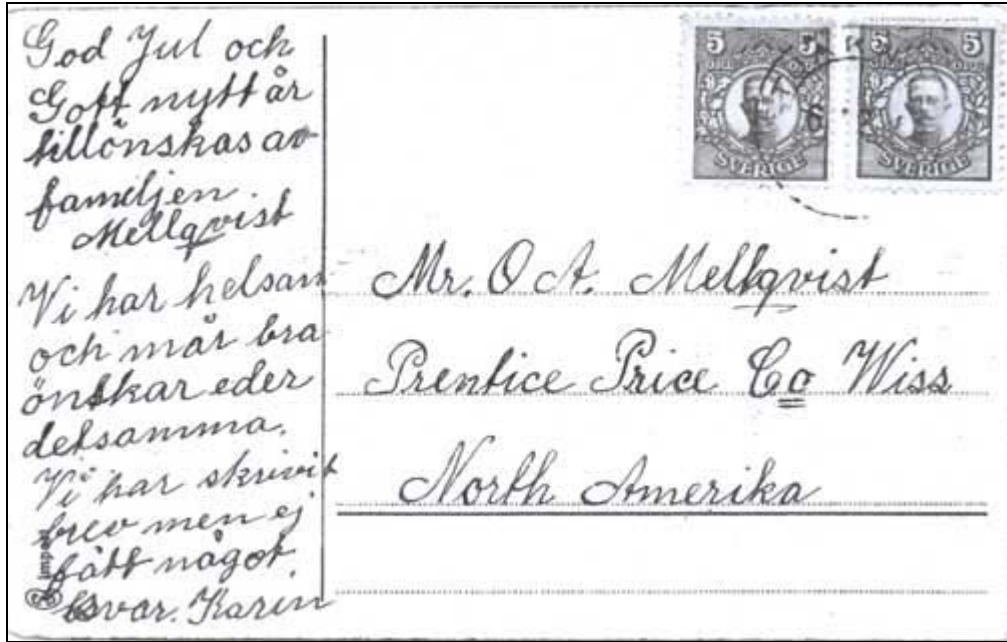 God Jul och
Gott nytt år
tillönskas av
familjen.
Mellqvist
Vi har helsan
och mår bra
önskar eder
detsamma.
Vi har skrivit
brev men ej
fått något.
svar. Karin
5 5
SVERIGE
5 5
SVERIGE
Mr. O A. Mellqvist
Prentice Price Co Wiss
North Amerika